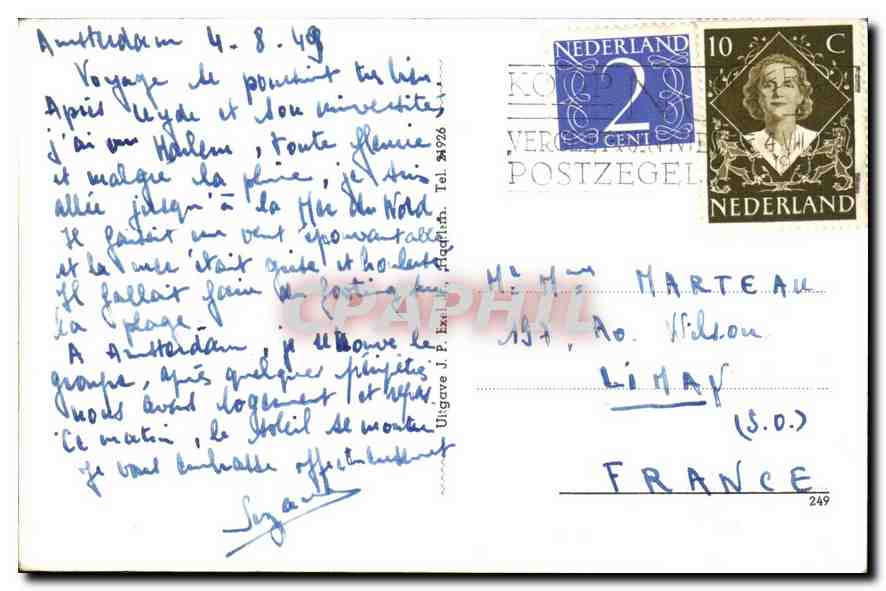 Amsterdam 4.8.49
Voyage se poursuit très bien
Après Leyde et son université,
j'ai vu Harlem, toute fleurie
et malgré la pluie, je suis
allée jusqu'à la Mer du Nord
Il faisait un vent épouvantable
et la mer était grise et houleuse
Il fallait faire du footing sur
la plage.
A Amsterdam, je retrouve le
groupe, après quelques péripéties
nous avons logement et repas
Ce matin, le soleil se montre
Je vous embrasse affectueusement
Suzanne
Uitgave J. P. Exel Haarlem. Tel. 21926
NEDERLAND
2
CENT
10 C
NEDERLAND
POSTZEGEL
Mr Mme MARTEAU
197, Av. Wilson
LIMAY
(S.O.)
FRANCE
249
CPAPHIL